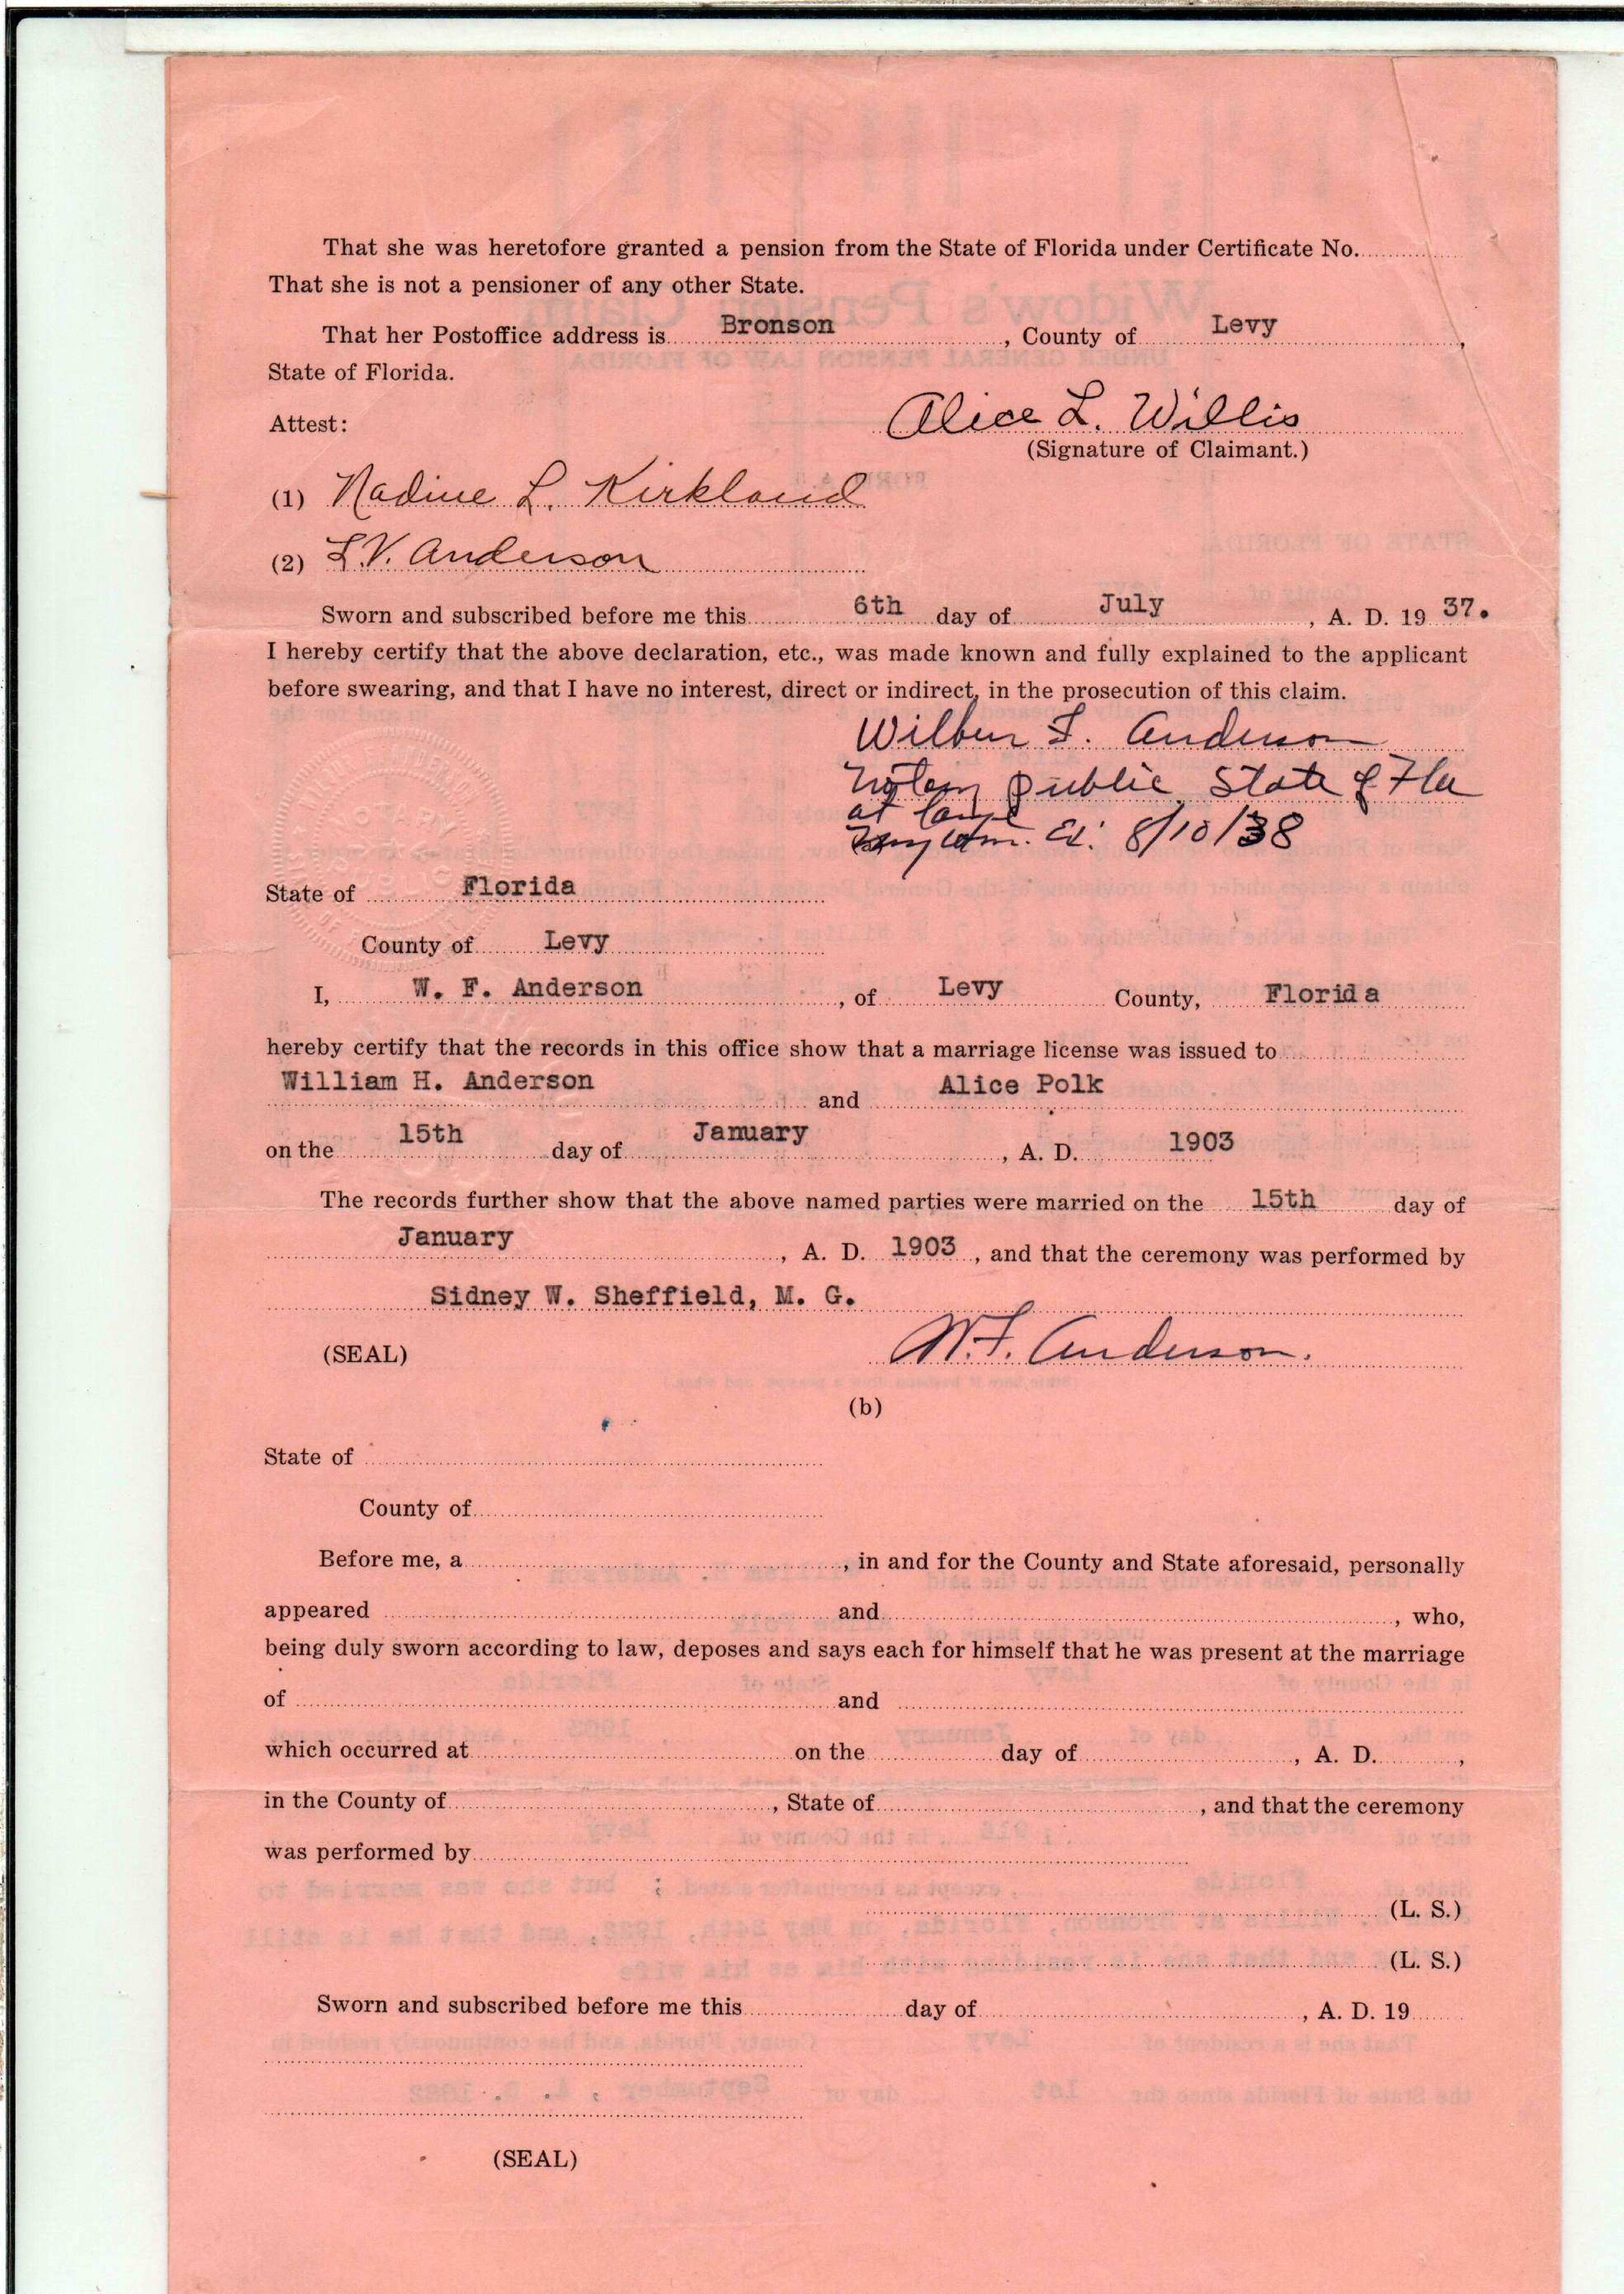 That she was heretofore granted a pension from the State of Florida under Certificate No.
That she is not a pensioner of any other State.
That her Postoffice address is Bronson, County of Levy,
State of Florida.
Attest:
Alice L. Willis
(Signature of Claimant.)
(1) Nadine L. Kirkland
(2) L.V. Anderson
Sworn and subscribed before me this 6th day of July, A. D. 19 37.
I hereby certify that the above declaration, etc., was made known and fully explained to the applicant
before swearing, and that I have no interest, direct or indirect, in the prosecution of this claim.
Wilbur F. Anderson
Notary Public State of Fla
at large
My Com. Ex. 8/10/38
NOTARY
PUBLIC
State of Florida
County of Levy
I, W. F. Anderson, of Levy County, Florida
hereby certify that the records in this office show that a marriage license was issued to
William H. Anderson and Alice Polk
on the 15th day of January, A. D. 1903
The records further show that the above named parties were married on the 15th day of
January, A. D. 1903, and that the ceremony was performed by
Sidney W. Sheffield, M. G.
(SEAL) W.F. Anderson.
(b)
State of
County of
Before me, a, in and for the County and State aforesaid, personally
appeared and, who,
being duly sworn according to law, deposes and says each for himself that he was present at the marriage
of and
which occurred at on the day of, A. D.,
in the County of, State of, and that the ceremony
was performed by
(L. S.)
(L. S.)
Sworn and subscribed before me this day of, A. D. 19
(SEAL)